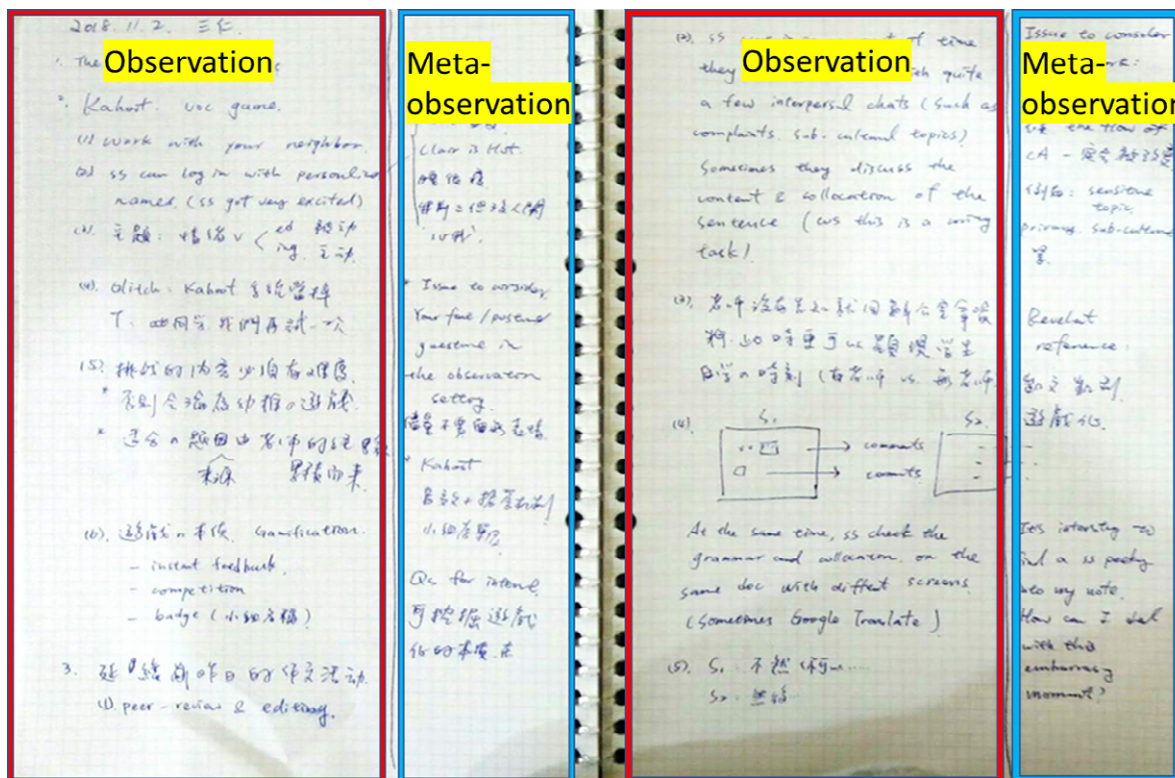 2018.11.2. 三仁.
Observation
1. The
2. Kahoot. voc game.
(1) work with your neighbor.
(2) ss can log in with personalize
names. (ss got very excited)
(3) 主題: 情緒 v < ed 被動
ing. 主動.
(4). Glitch. Kahoot 系統當掉
T: 我們再試一次
(5). 挑戰的內容必須有難度.
* 否則會淪為幼稚の遊戲.
* 適合の題目由老師的
來源 累積而來.
(6). 遊戲の本質. Gamification.
- instant feedback.
- competition
- badge (小組名稱)
3. 延續前昨日的作文活動.
(1). peer-review & editing.
Meta-
observation
Clair is Hot.
"IU我".
* Issue to consider.
Your face/posture
guesture in
the observation
setting.
儘量不要面部表情.
* Kahoot
小組
Qs for interview
可挖掘遊戲
化的本質.
(2). ss of time
they quite
Observation
a few interpersonal chats (such as
complaints. sub-cultural topics)
Sometimes they discuss the
content & collocation of the
sentence (cus this is a writing
task)
(3). 老師沒有
料. 此時更可以顯現學生
自學の時刻 (有老師 vs. 無老師.
(4) S1 S2.
→ comments
→ commts
At the same time, ss check the
grammar and collocation. on the
same doc with diffent screens.
(Sometimes Google Translate)
(5). S1. 不然
S2.
Issue to consider
Meta-
observation
the flow of
CA -
例如: sensitive
topic,
privacy. sub-culture
等.
Revelant
reference:
遊戲化.
It's intersting to
find a ss
into my note.
How can I deal
with this
embarrasy
moment?